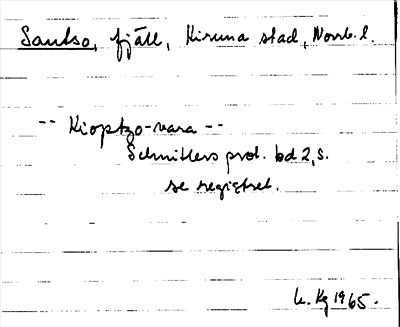 Sautso, fjäll, Kiruna stad, Norrb. l.
-- Kioptzo-vara --
Schnitlers prot. bd 2, s.
se registret.
U. Kg 1965.